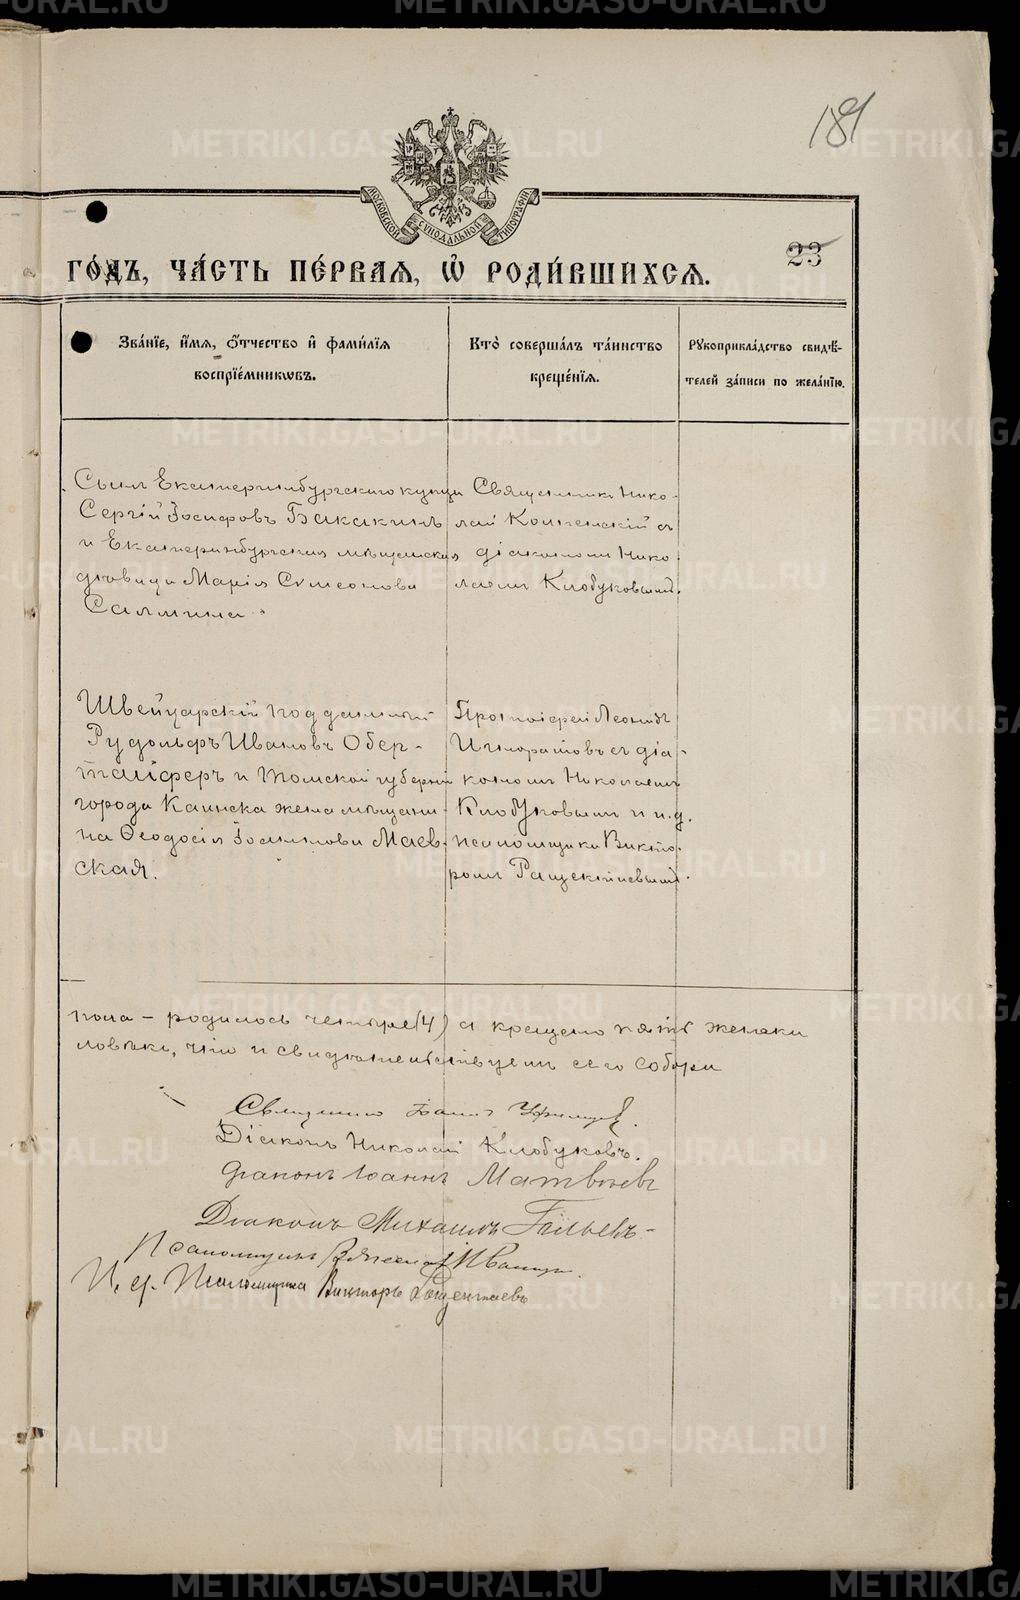 181
МОСКОВСКОЙ СѴНОДАЛЬНОЙ ТИПОГРАФИИ
23
ГО́ДЪ, ЧА́СТЬ ПЕ́РВАЯ, Ѡ҆ РОДИ́ВШИХСЯ.
Зва́нїе, и҆́мѧ, ѻ҆́тчество и҆ фами́лїѧ
воспрїе́мникѡвъ.
Кто̀ соверша́лъ та́инство
креще́нїѧ.
Рꙋкоприкла́дство свидѣ́-
телей за́писи по жела́нїю.
Сынъ Екатеринбургскаго купца
Сергій Іосифовъ Бакакинъ
и Екатеринбургская мѣщанская
дѣвица Марія Сѵмеонова
Салмина.
Священникъ Нико-
лай съ
діакономъ Нико-
лаемъ Клобуковымъ.
Швейцарскій подданный
Рудольфъ Ивановъ Обер-
тайферъ и Томской губерніи
города Каинска жена мѣщани-
на Ѳеодосія Маев-
ская.
Протоіерей Леонидъ
Игноратовъ съ діа-
кономъ Николаемъ
Клобуковымъ и и.д.
псаломщика Викто-
ромъ
пола – родилось четыре (4) а крещено пять
ловѣкъ, что и свидѣтельствуемъ сего собора
Священникъ
Діаконъ Николай Клобуковъ.
Діаконъ Іоаннъ Матвѣевъ
Діаконъ Михаилъ
Псаломщикъ
И. д. Псаломщика Викторъ
METRIKI.GASO-URAL.RU